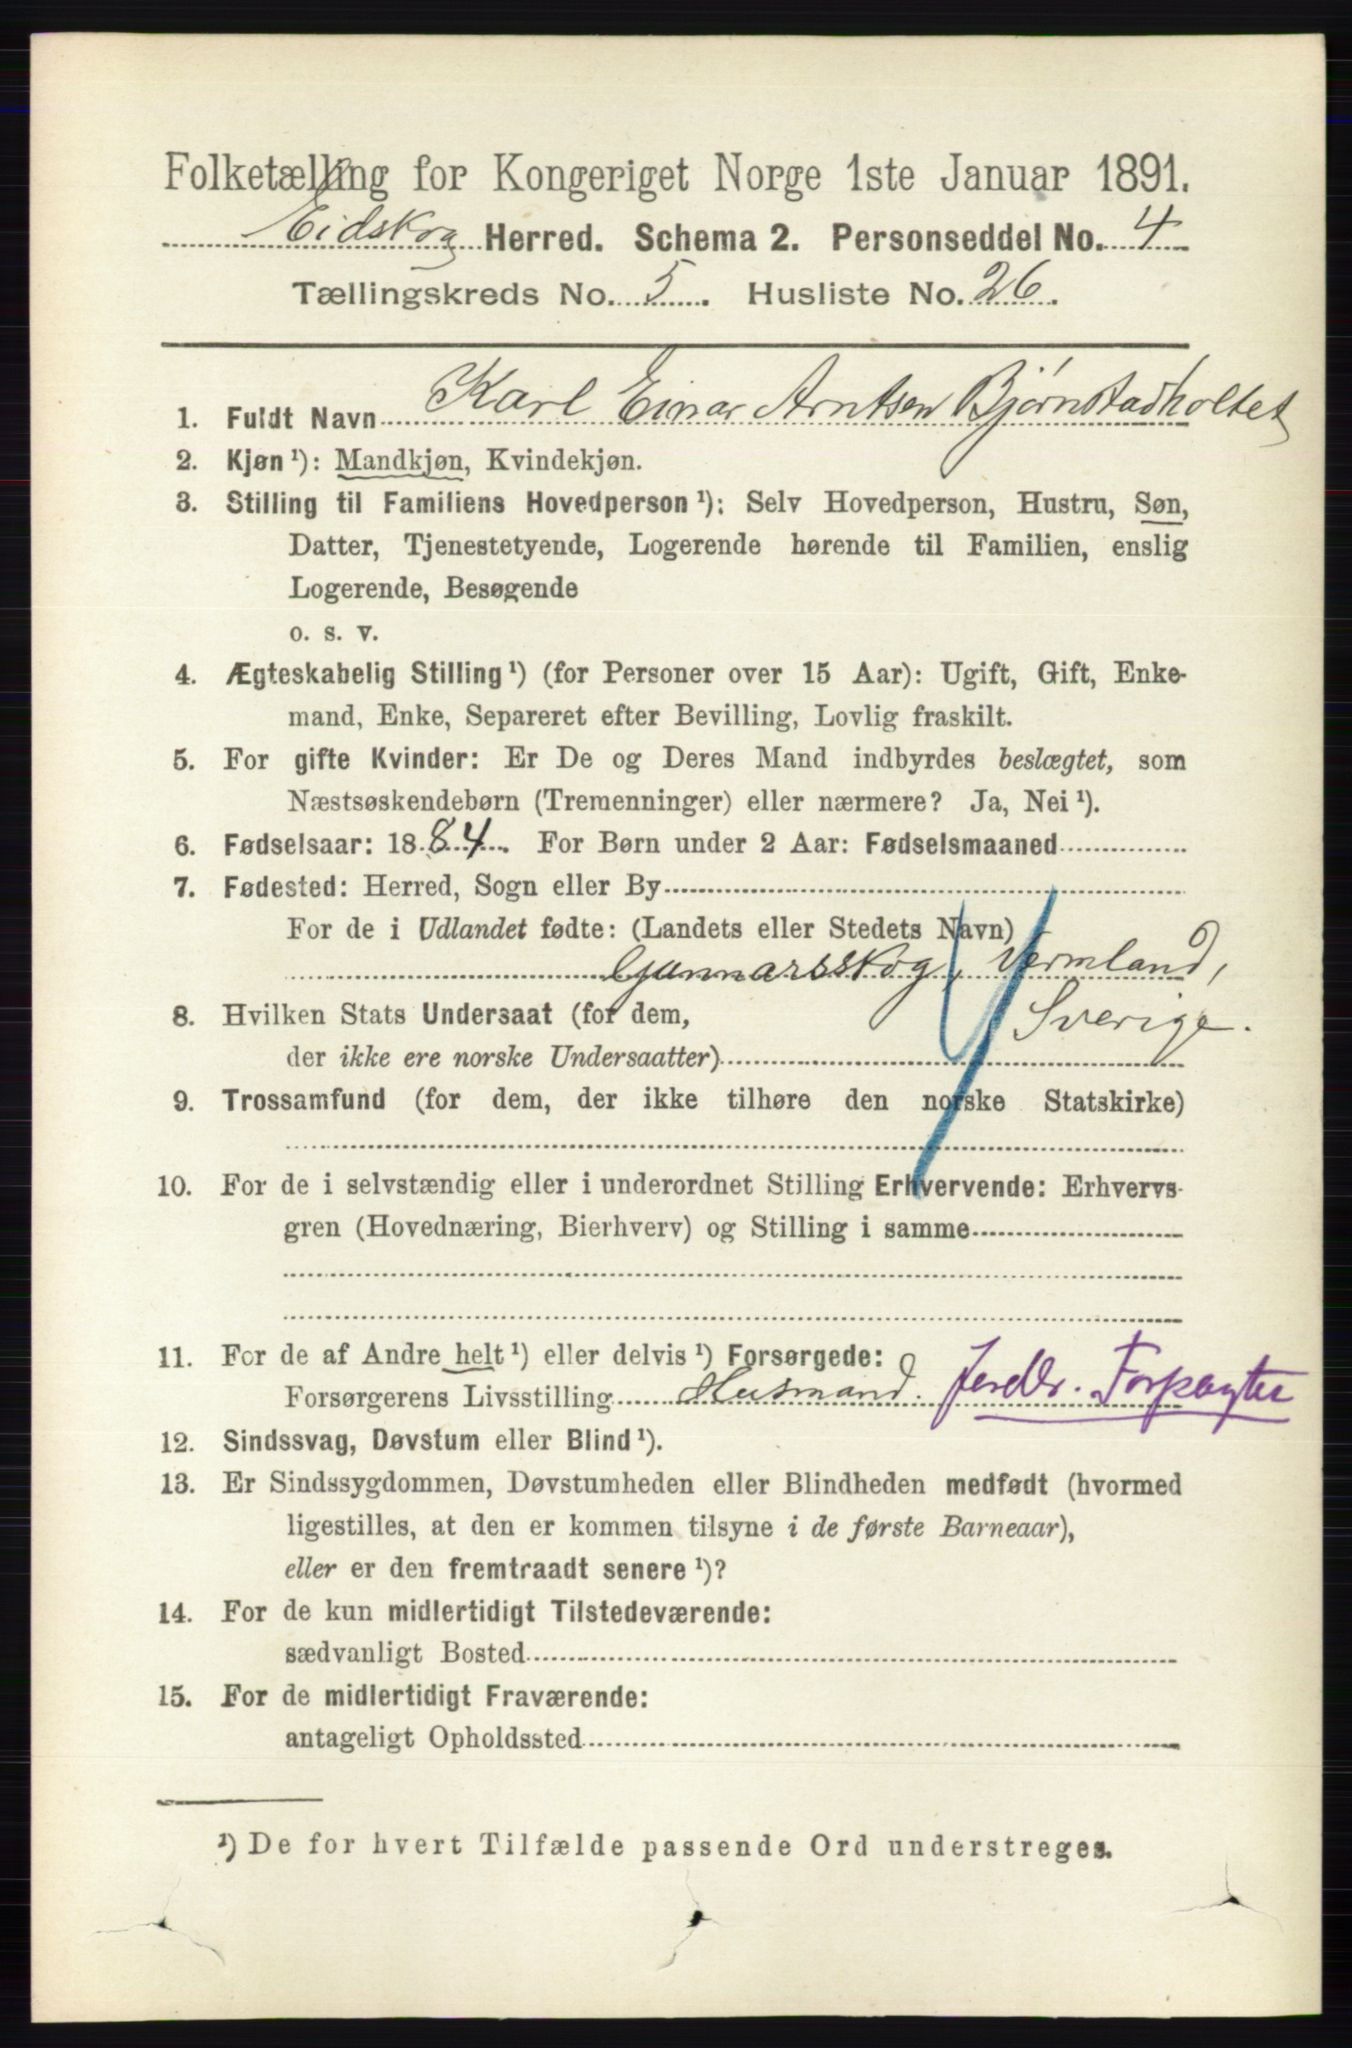 Folketælling for Kongeriget Norge 1ste Januar 1891.
Eidskog Herred. Schema 2. Personseddel No. 4
Tællingskreds No. 5. Husliste No. 26.
1. Fuldt Navn Karl Einar Arntsen Bjørnstadholtet
2. Kjøn ¹): Mandkjøn, Kvindekjøn.
3. Stilling til Familiens Hovedperson ¹): Selv Hovedperson, Hustru, Søn,
Datter, Tjenestetyende, Logerende hørende til Familien, enslig
Logerende, Besøgende
o. s. v.
4. Ægteskabelig Stilling ¹) (for Personer over 15 Aar): Ugift, Gift, Enke-
mand, Enke, Separeret efter Bevilling, Lovlig fraskilt.
5. For gifte Kvinder: Er De og Deres Mand indbyrdes beslægtet, som
Næstsøskendebørn (Tremenninger) eller nærmere? Ja, Nei ¹).
6. Fødselsaar: 1884. For Børn under 2 Aar: Fødselsmaaned
7. Fødested: Herred, Sogn eller By
For de i Udlandet fødte: (Landets eller Stedets Navn)
Gunnarsskog, Vermland,
8. Hvilken Stats Undersaat (for dem, Sverige.
der ikke ere norske Undersaatter)
9. Trossamfund (for dem, der ikke tilhøre den norske Statskirke)
10. For de i selvstændig eller i underordnet Stilling Erhvervende: Erhvervs-
gren (Hovednæring, Bierhverv) og Stilling i samme
11. For de af Andre helt ¹) eller delvis ¹) Forsørgede:
Forsørgerens Livsstilling Husmand. Jordbr. Forpagter
12. Sindssvag, Døvstum eller Blind ¹).
13. Er Sindssygdommen, Døvstumheden eller Blindheden medfødt (hvormed
ligestilles, at den er kommen tilsyne i de første Barneaar),
eller er den fremtraadt senere ¹)?
14. For de kun midlertidigt Tilstedeværende:
sædvanligt Bosted
15. For de midlertidigt Fraværende:
antageligt Opholdssted
¹) De for hvert Tilfælde passende Ord understreges.